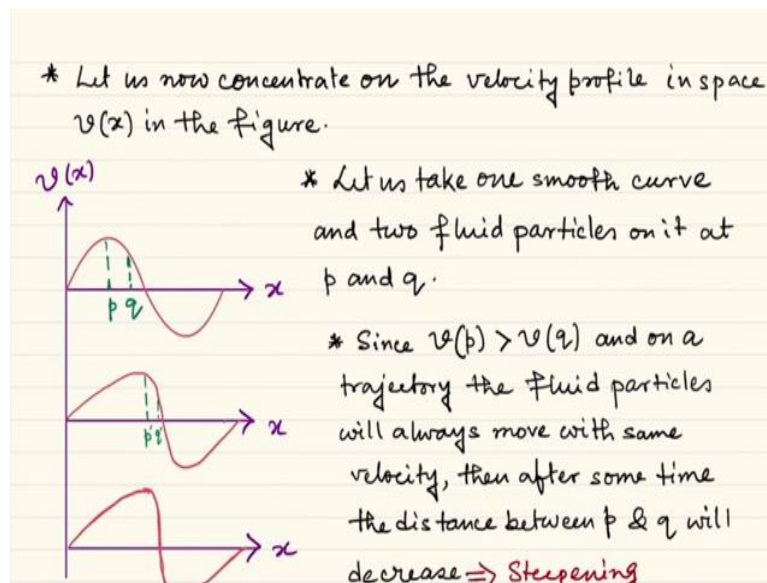 * Let us now concentrate on the velocity profile in space
v(x) in the figure.
v(x)
* Let us take one smooth curve
and two fluid particles on it at
p and q.
x
p q
* Since v(p) > v(q) and on a
trajectory the fluid particles
will always move with same
velocity, then after some time
the distance between p & q will
decrease => Steepening
x
p' q'
x